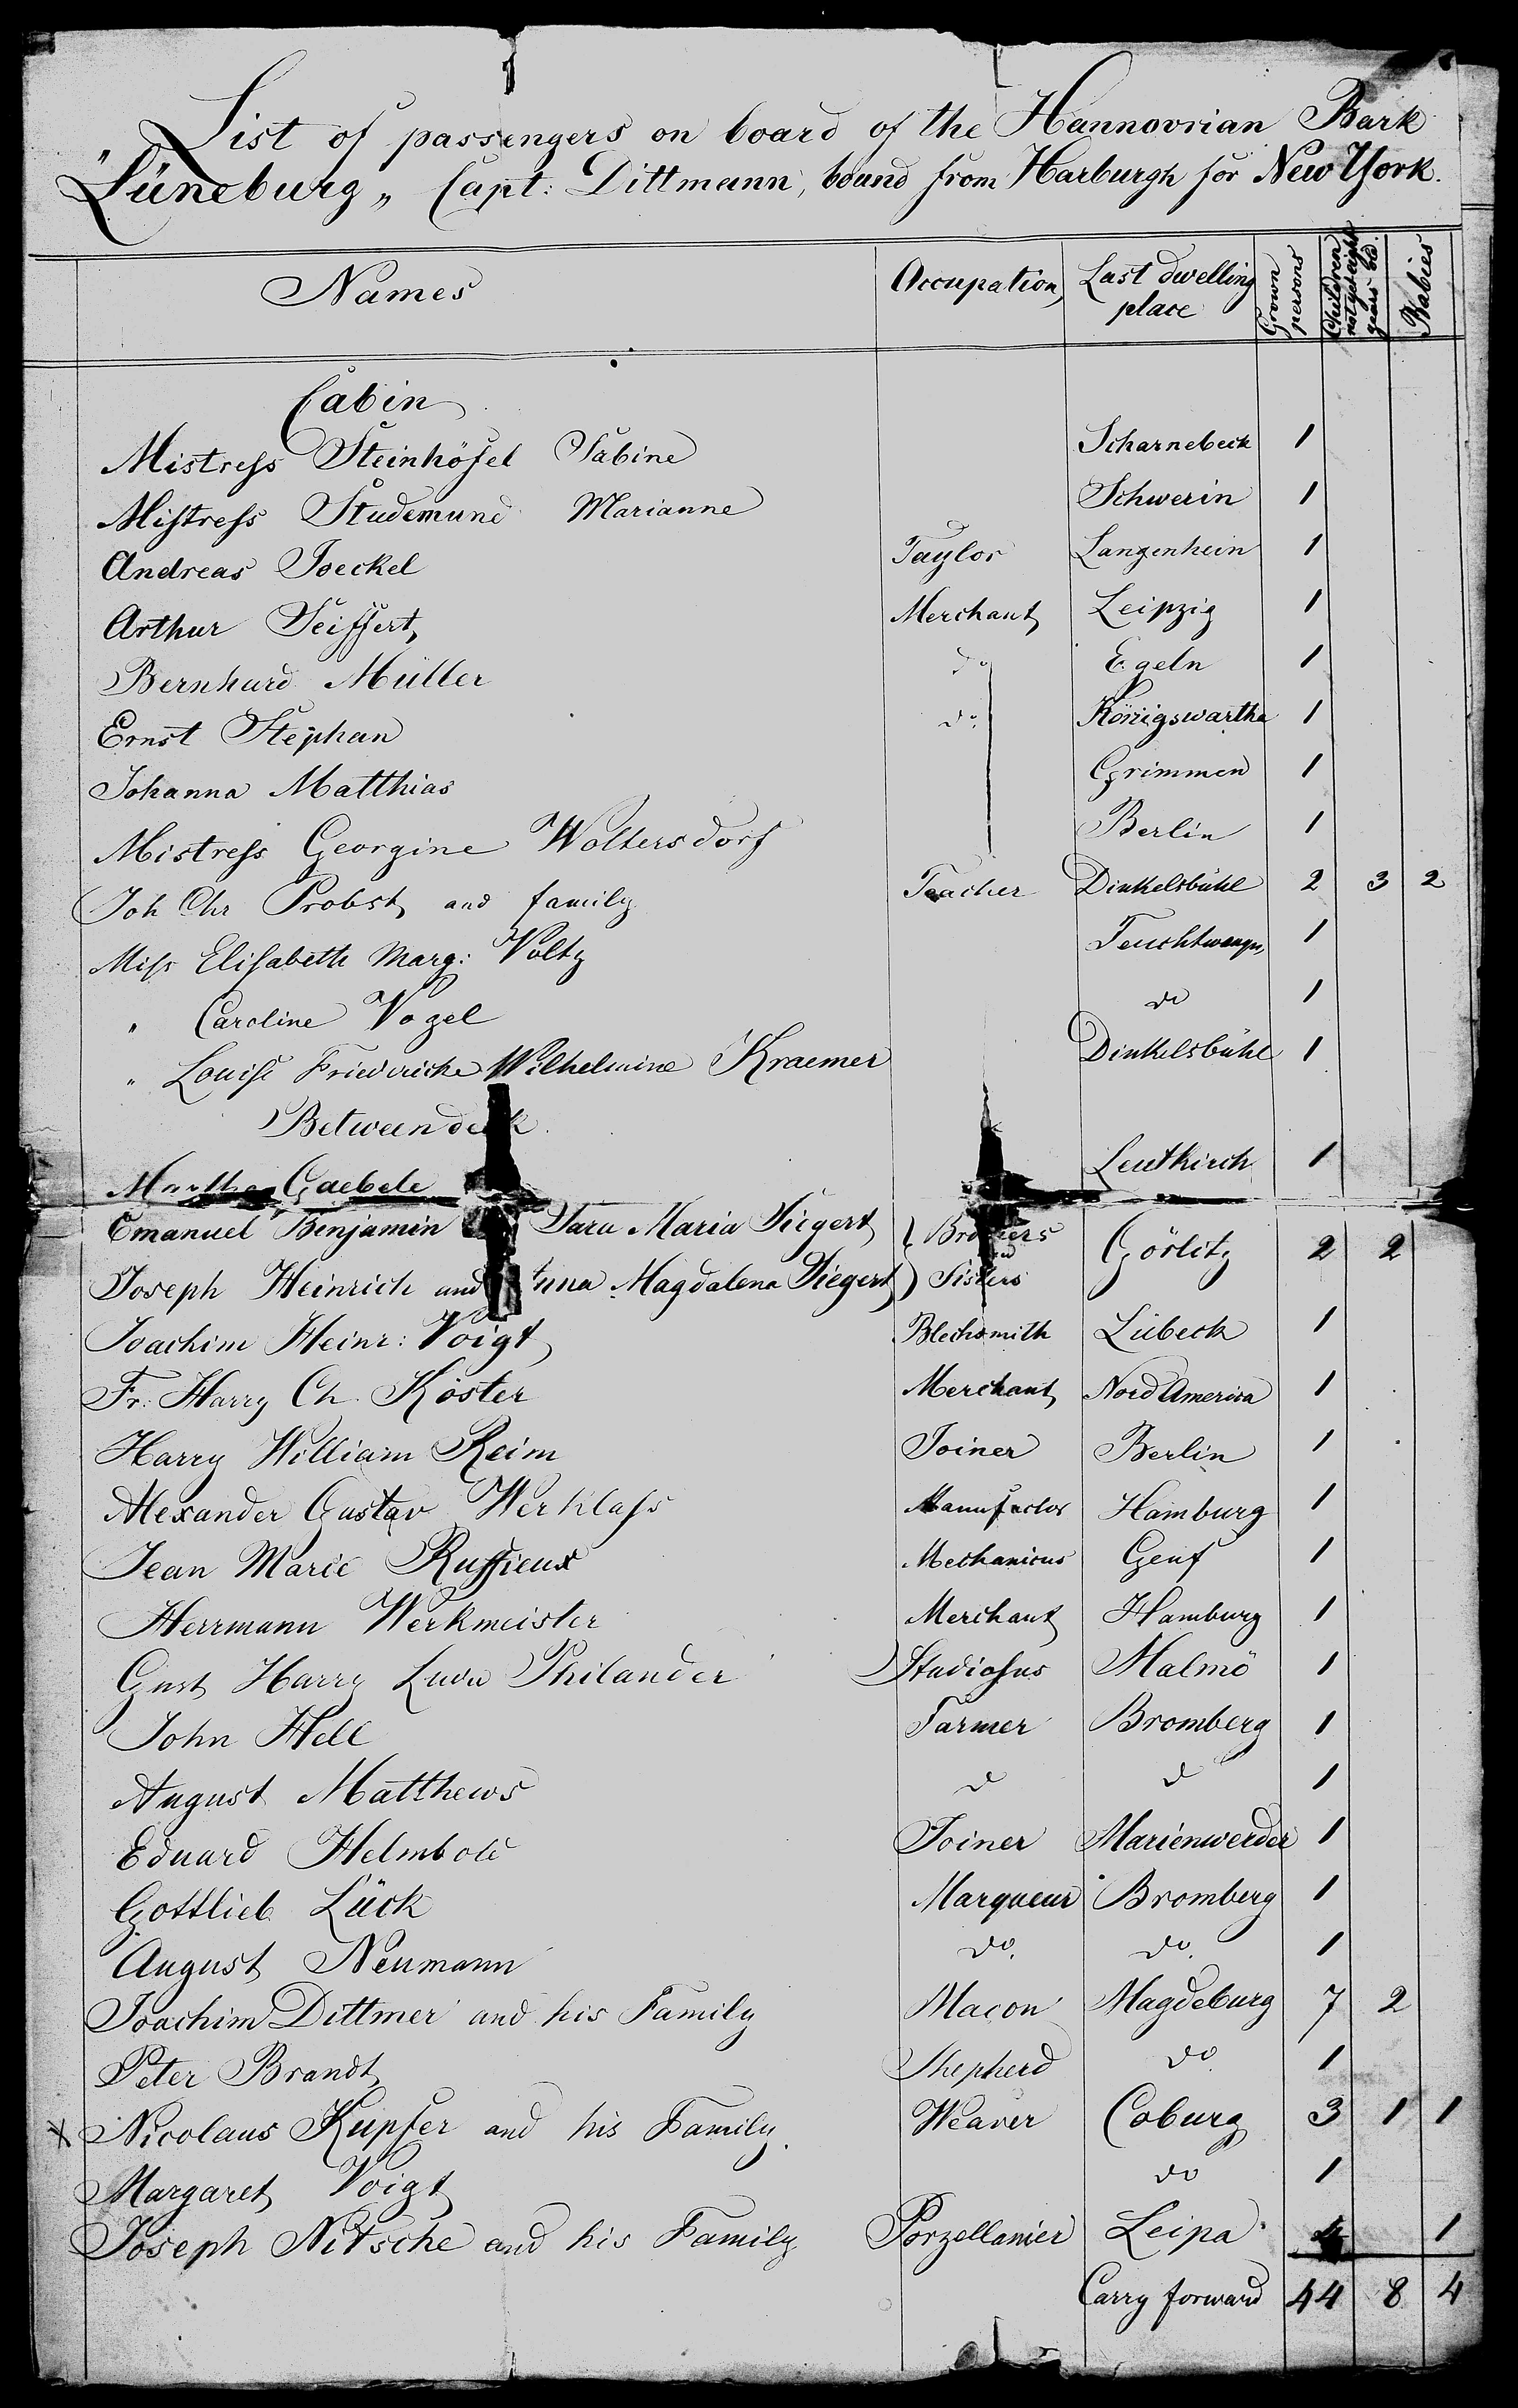 List of passengers on board of the Hannovrian Bark
"Lüneburg„ Capt: Dittmann, bound from Harburgh for New York.
Names Occupation Last dwelling place Grown persons Children not yet eight years old. Babies
Cabin
Mistress Steinhöfel Sabine Scharnebeck 1
Mistress Studemund Marianne Schwerin 1
Andreas Joeckel Taylor Langenhein 1
Arthur Seiffert Merchant Leipzig 1
Bernhard Müller do Egeln 1
Ernst Stephan do. Königswartha 1
Johanna Matthias Grimmen 1
Mistress Georgine Woltersdorf Berlin 1
Joh Chr Probst and family Teacher Dinkelsbühl 2 3 2
Miss Elisabeth Marg: Voltz Feuchtwangen 1
" Caroline Vogel do 1
" Louise Friedericke Wilhelmine Kraemer Dinkelsbühl 1
Between deck.
Martha Gaebele Leutkirch 1
Emanuel Benjamin Sara Maria Siegert } Brothers Görlitz 2 2
Joseph Heinrich and Anna Magdalena Siegert } Sisters
Joachim Heinr: Voigt Blechsmith Lübeck 1
Fr. Harry Ch. Köster Merchant Nord America 1
Harry William Reim Joiner Berlin 1
Alexander Gustav Werklass Manufactor Hamburg 1
Jean Marie Ruffieux Mechanicus Genf 1
Herrmann Werkmeister Merchant Hamburg 1
Gust Harry Ludw Philander Studiosus Malmö 1
John Hell Farmer Bromberg 1
August Matthews d d 1
Eduard Helmbold Joiner Marienwerder 1
Gottlieb Lück Marqueur Bromberg 1
August Neumann do. do. 1
Joachim Dittmer and his Family Macon Magdeburg 7 2
Peter Brandt Shepherd do 1
x Nicolaus Kupfer and his Family. Weaver Coburg 3 1 1
Margaret Voigt do 1
Joseph Nitsche and his Family Porzellanier Leipa 4 1
Carry forward 44 8 4